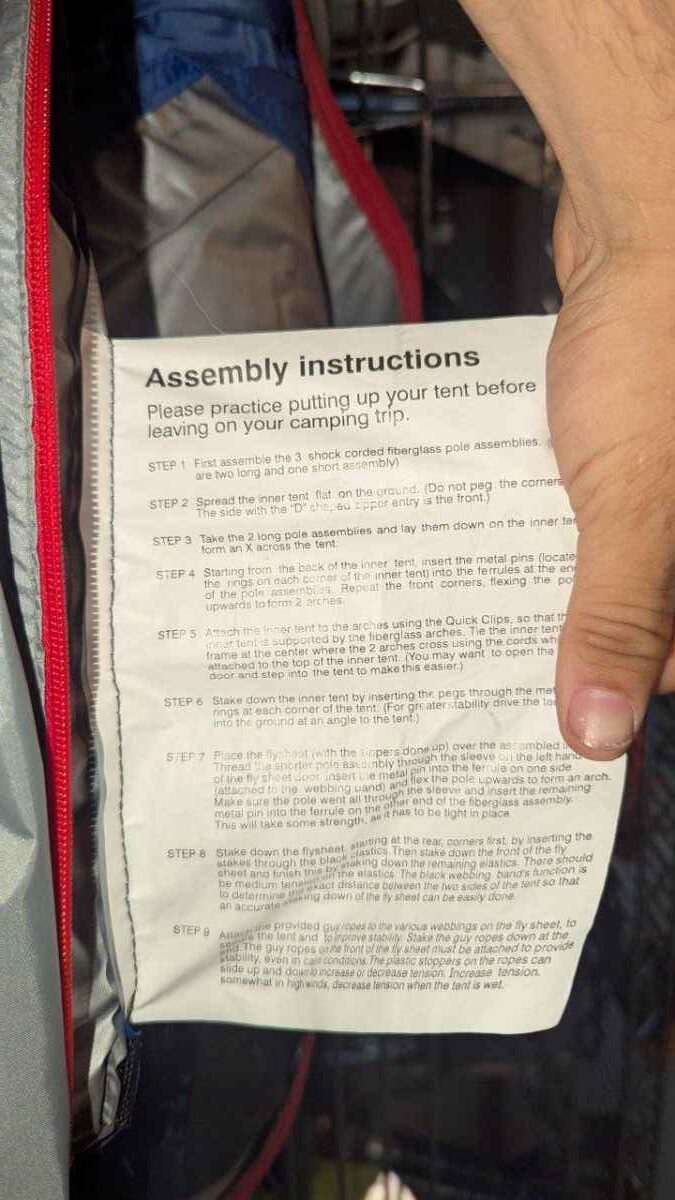 Assembly instructions
Please practice putting up your tent before
leaving on your camping trip.
STEP 1 First assemble the 3 shock corded fiberglass pole assemblies.
are two long and one short assembly)
STEP 2 Spread the inner tent flat on the ground. (Do not peg the corners
The side with the "D" zipper entry is the front.)
STEP 3 Take the 2 long pole assemblies and lay them down on the inner
form an X across the tent.
STEP 4 Starting from the back of the inner tent, insert the metal pins
the rings on each corner of the inner tent) into the ferrules at the
of the pole assemblies. Repeat the front corners, flexing the
upwards to form 2 arches.
STEP 5 Attach the inner tent to the arches using the Quick Clips, so that
inner tent is supported by the fiberglass arches. Tie the inner tent
frame at the center where the 2 arches cross using the cords
attached to the top of the inner tent. (You may want to open the
door and step into the tent to make this easier.)
STEP 6 Stake down the inner tent by inserting the pegs through the
rings at each corner of the tent. (For greater stability drive the
into the ground at an angle to the tent.)
STEP 7 Place the flysheet (with the zippers done up) over the assembled
Thread the shorter pole assembly through the sleeve on the left hand
of the fly sheet door insert the metal pin into the ferrule on one side
(attached to the webbing band) and flex the pole upwards to form an arch.
Make sure the pole went all through the sleeve and insert the remaining
metal pin into the ferrule on the other end of the fiberglass assembly.
This will take some strength, as it has to be tight in place.
STEP 8 Stake down the flysheet, starting at the rear, corners first, by inserting the
stakes through the black elastics. Then stake down the front of the fly
sheet and finish this by staking down the remaining elastics. There should
be medium tension on the elastics. The black webbing band's function is
to determine the exact distance between the two sides of the tent so that
an accurate staking down of the fly sheet can be easily done.
STEP 9 Attach the provided guy ropes to the various webbings on the fly sheet, to
the tent and to improve stability. Stake the guy ropes down at the
The guy ropes on the front of the fly sheet must be attached to provide
stability, even in calm conditions. The plastic stoppers on the ropes can
slide up and down to increase or decrease tension. Increase tension,
somewhat in high winds, decrease tension when the tent is wet.